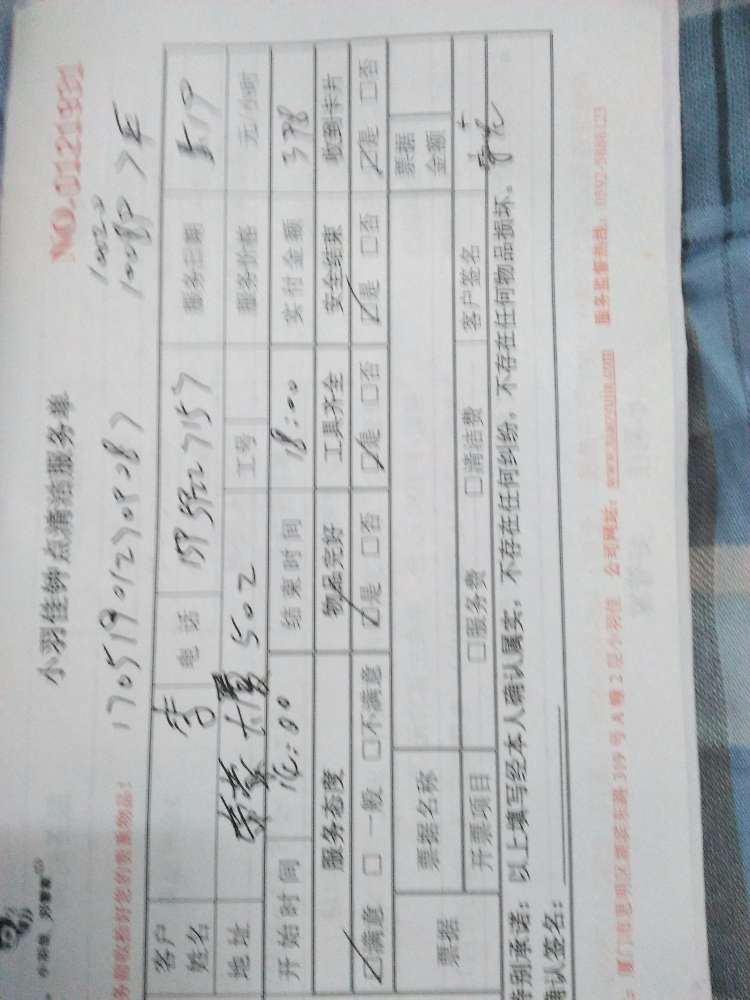 小羽佳钟点清洁服务单
NO.0121931
务前收拾好您的贵重物品:
客户姓名 李 电话 服务日期 5.19
地址 大厦 502 工号 服务价格 元/小时
开始时间 结束时间 18:00 实付金额 378
服务态度 物品完好 工具齐全 安全结束 收到卡片
☑满意 □一般 □不满意 ☑是 □否 ☑是 □否 ☑是 □否 ☑是 □否
票据 票据名称 票据金额
开票项目 □服务费 □清洁费 客户签名
特别承诺: 以上填写经本人确认属实, 不存在任何纠纷, 不存在任何物品损坏。
确认签名:
厦门市思明区湖滨东路319号A幢2层小羽佳 公司网址: www.xiaoyujia.com 服务监督热线: